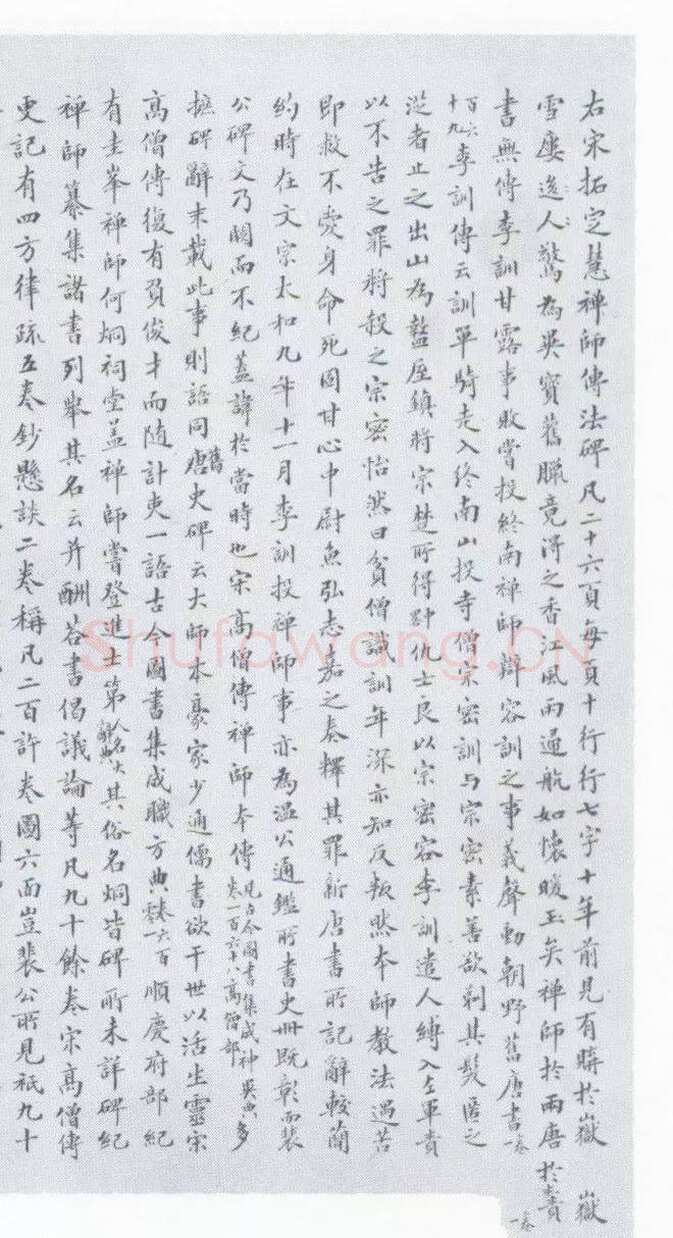 右宋拓定慧禅師傳法碑凡二十六頁每頁十行行七字十年前見有購於嶽
嶽
雪廔逸人驚為吳寶舊臘竟淂之香江風雨通航如懷暖玉矣禅師於兩唐
於
書無傳李訓甘露事敗嘗投終南禅師辯容訓之事義聲動朝野舊唐書卷一
卷一
百六十九李訓傳云訓單騎走入終南山投寺僧宗密訓与宗密素善欲剃其髮匿之
從者止之出山為盩厔鎮將宗楚所得 仇士良以宗密容李訓遣人縛入左軍責
以不告之罪將殺之宗密怡然曰貧僧識訓年深亦知反叛然本師教法遇苦
即救不愛身命死固甘心中尉魚弘志嘉之奏釋其罪新唐書所記辭較簡
約時在文宗大和九年十一月李訓投禅師事亦為温公通鑑所書史冊既彰而裴
公碑文乃闕而不紀蓋諱於當時也宋高僧傳禅師本傳見古今圖書集成神異典卷一百六十八高僧部多
摭碑辭末載此事則語同舊唐史碑云大師本豪家少通儒書欲干世以活生靈宋
高僧傳復有負俊才而随計吏一語古今圖書集成職方典卷六百一順慶府部紀
有圭峯禅師何炯祠堂並禅師嘗登進士第 其俗名炯皆碑所未詳碑紀
禅師纂集諸書列舉其名云并酬荅書偈議論等凡九十餘卷宋高僧傳
更記有四方律疏五卷鈔懸談二卷稱凡二百許卷圖六面豈裴公所見衹九十
Shufawang.CN